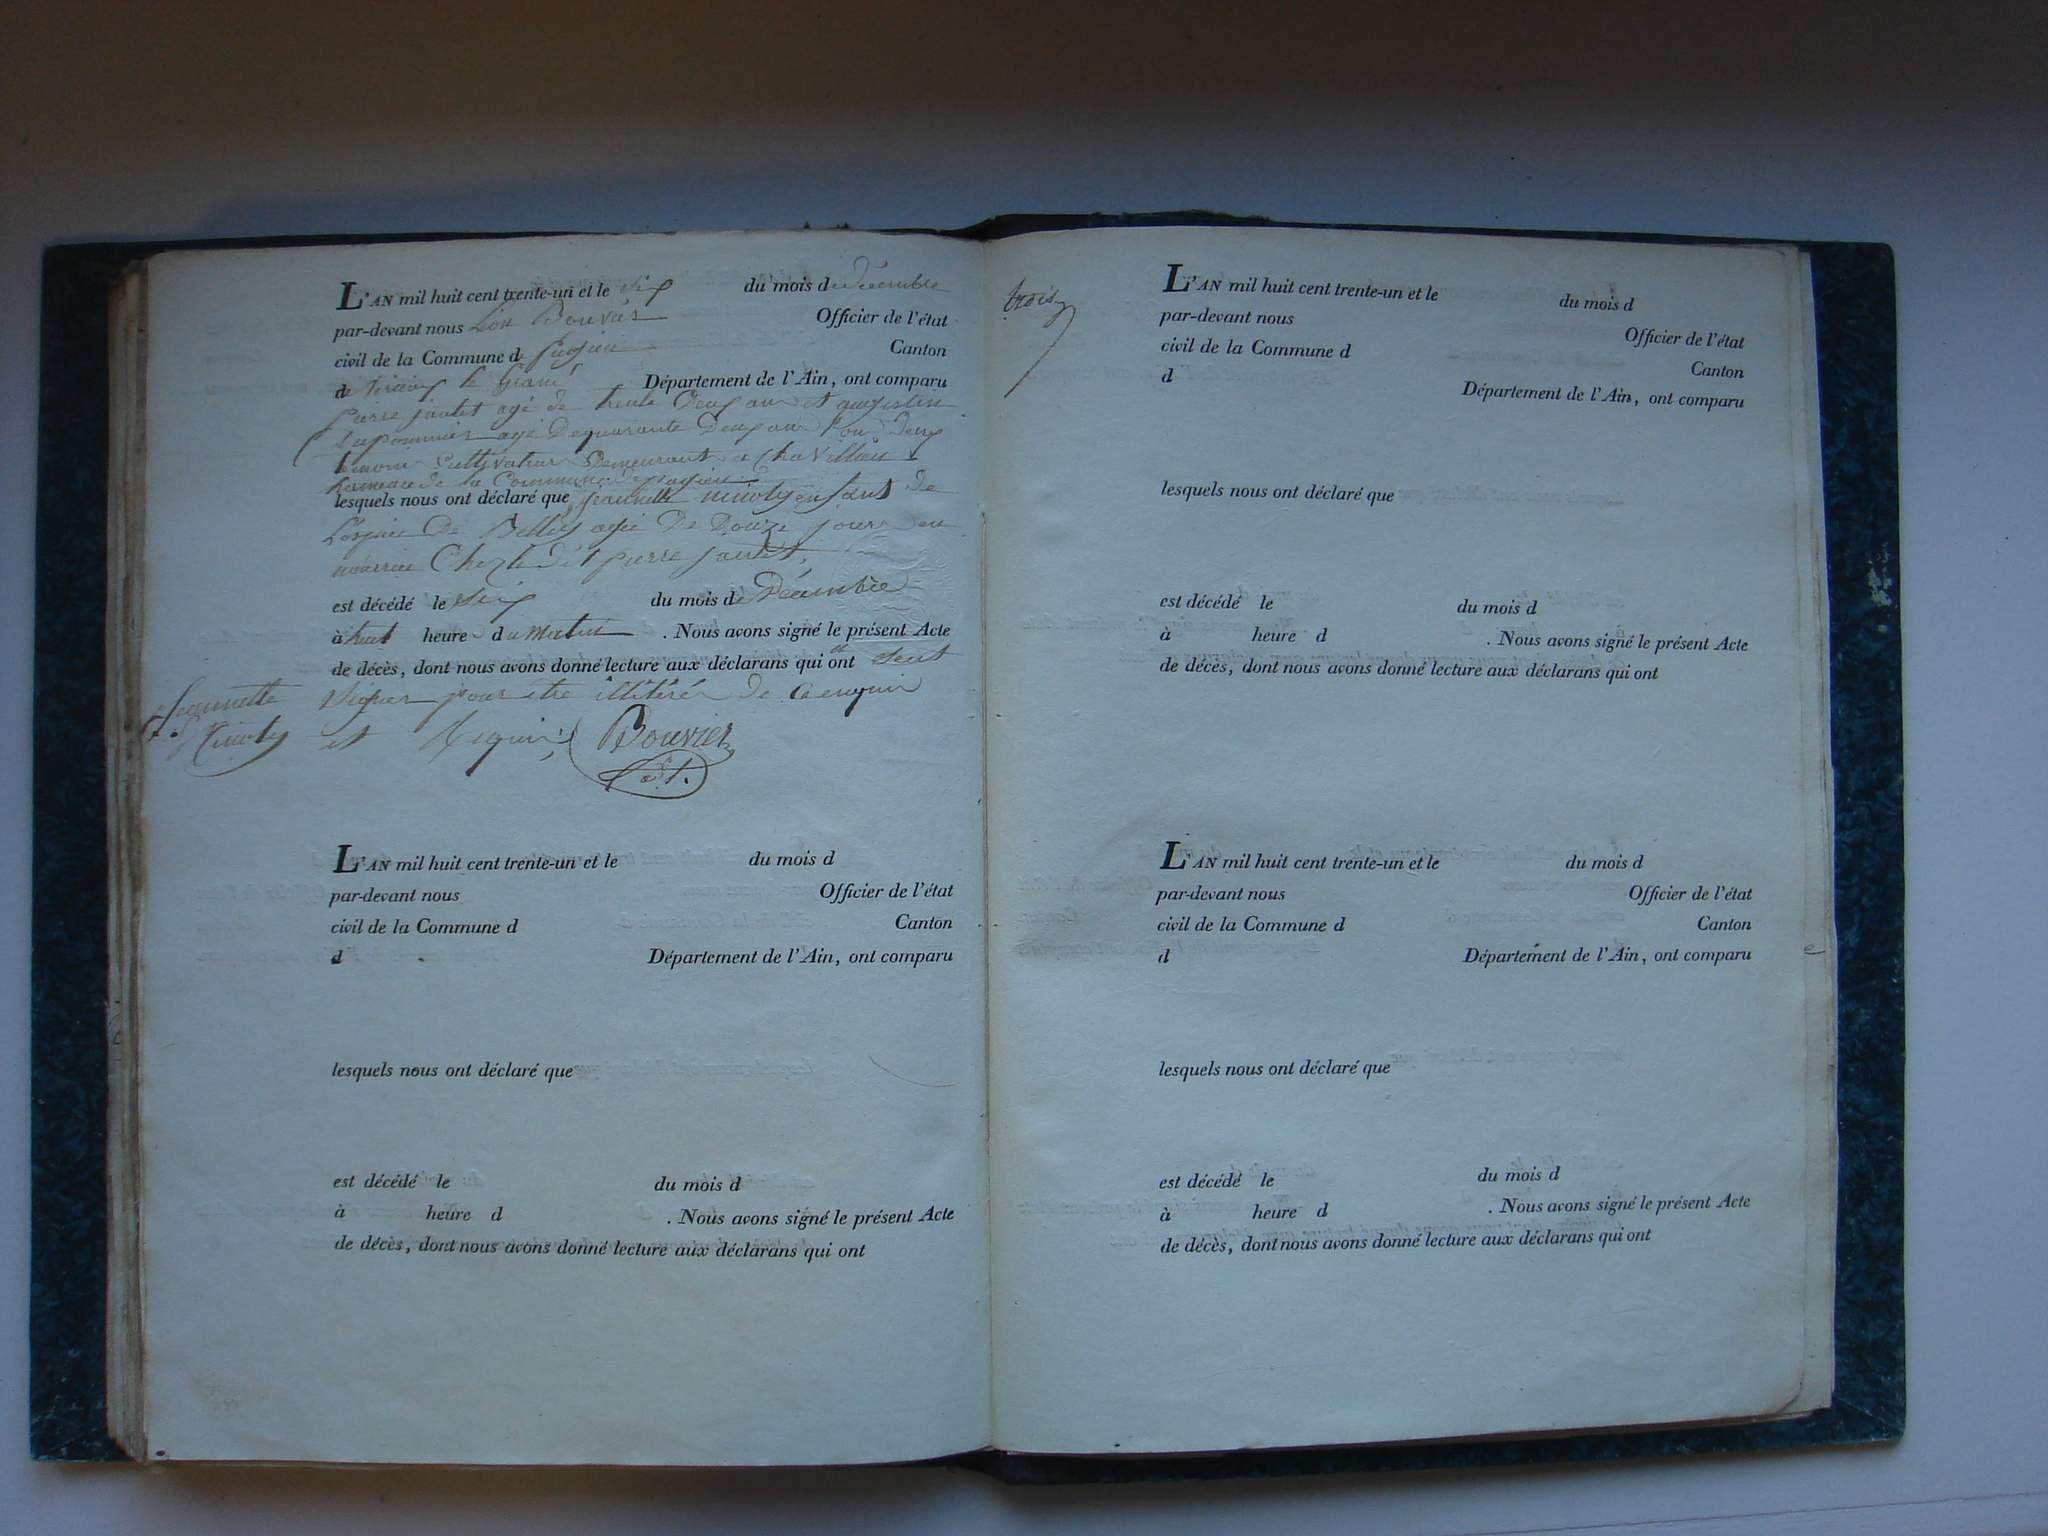 L'AN mil huit cent trente-un et le six du mois de décembre
par-devant nous Bouvier Officier de l'état
civil de la Commune de Pugieu Canton
de Virieu le Grand Département de l'Ain, ont comparu
pierre jantet agé de trente Deux an et augustin
agé De quarante Deux an tous Deux
Cultivateur Demeurant a Chavillieu
hameau de la Commune de Pugieu
lesquels nous ont déclaré que jeannette enfant de
De Belley agée De Douze jour en
nourrice Chez le dit pierre jantet,
est décédé le Six du mois de Décembre
à huit heure du Matin . Nous avons signé le présent Acte
de décès, dont nous avons donné lecture aux déclarans qui ont
Jeannette
signer pour être illitéré de ce enquis
et requis, Bouvier
adj.
L'AN mil huit cent trente-un et le du mois d
par-devant nous Officier de l'état
civil de la Commune d Canton
d Département de l'Ain, ont comparu
lesquels nous ont déclaré que
est décédé le du mois d
à heure d . Nous avons signé le présent Acte
de décès, dont nous avons donné lecture aux déclarans qui ont
trois
L'AN mil huit cent trente-un et le du mois d
par-devant nous Officier de l'état
civil de la Commune d Canton
d Département de l'Ain, ont comparu
lesquels nous ont déclaré que
est décédé le du mois d
à heure d . Nous avons signé le présent Acte
de décès, dont nous avons donné lecture aux déclarans qui ont
L'AN mil huit cent trente-un et le du mois d
par-devant nous Officier de l'état
civil de la Commune d Canton
d Département de l'Ain, ont comparu
lesquels nous ont déclaré que
est décédé le du mois d
à heure d . Nous avons signé le présent Acte
de décès, dont nous avons donné lecture aux déclarans qui ont